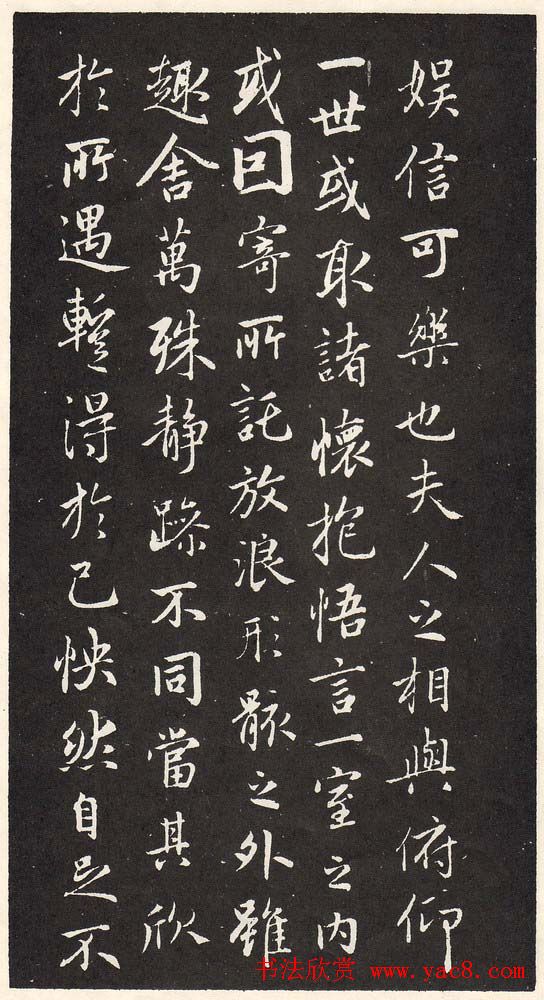 娱信可樂也夫人之相與俯仰
一世或取諸懷抱悟言一室之内
或因寄所託放浪形骸之外雖
趣舍萬殊静躁不同當其欣
於所遇蹔得於己怏然自足不
书法欣赏 www.yac8.com